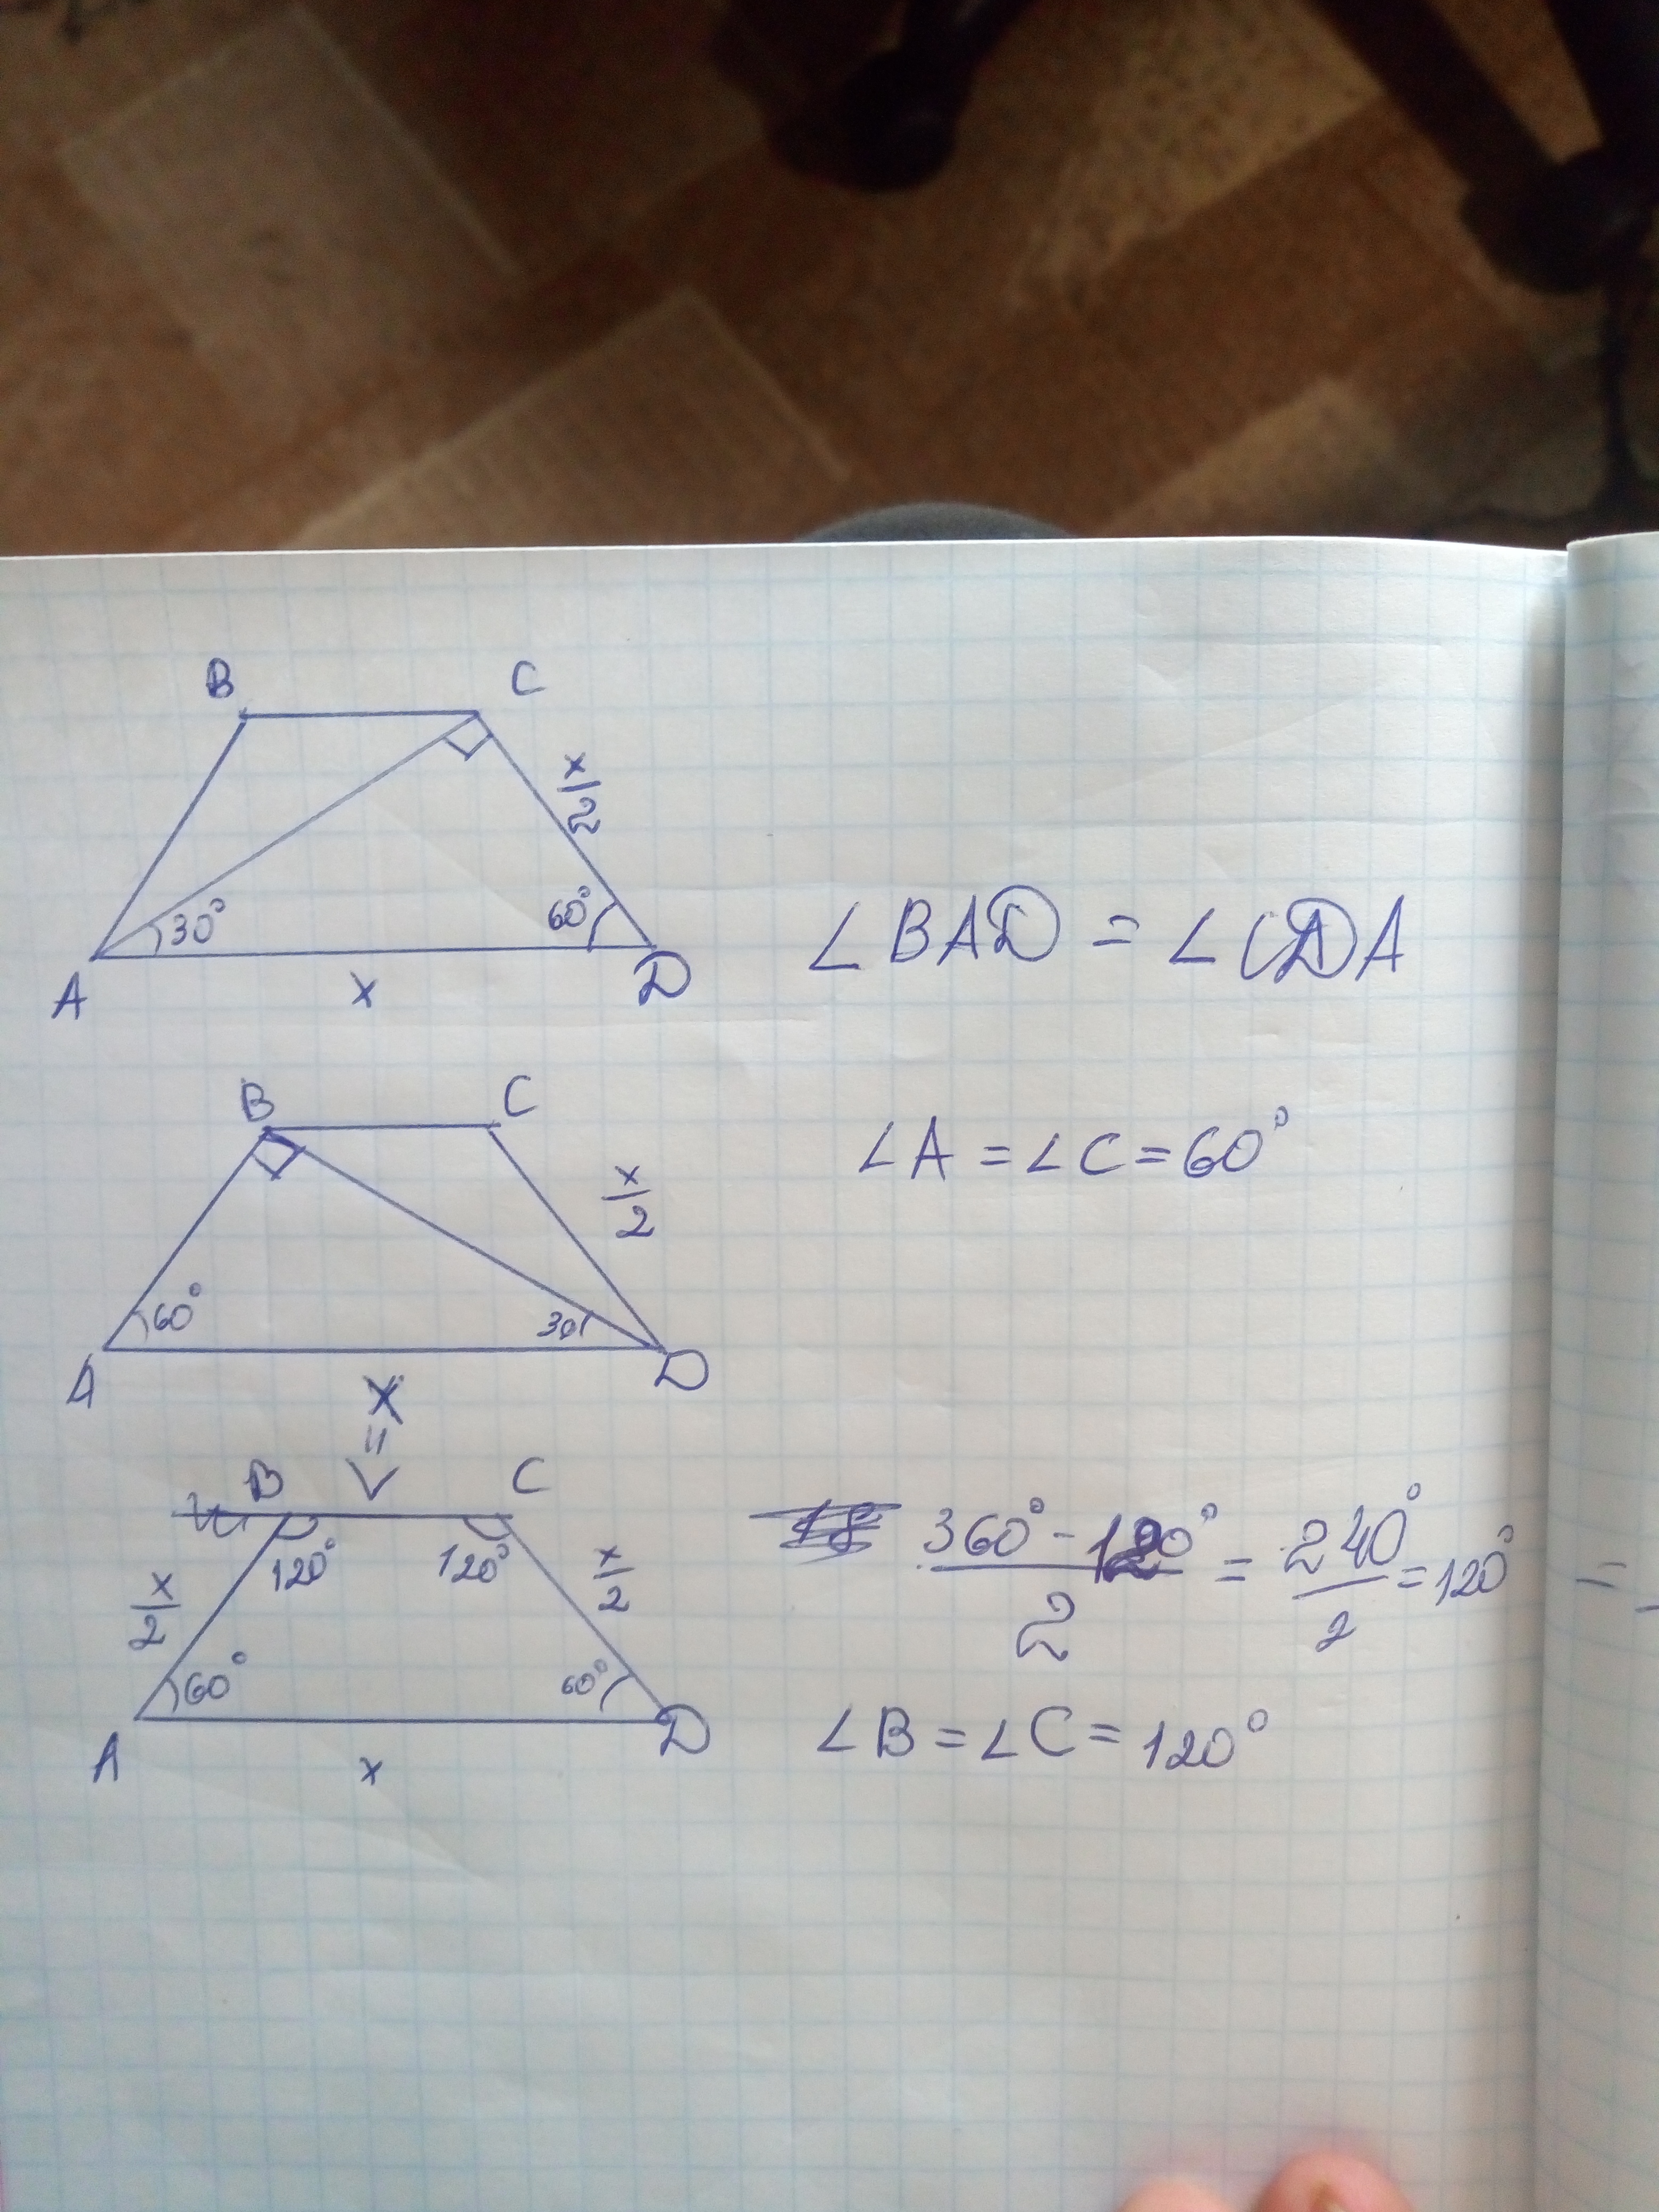 B C
x/2
30° 60°
A x D
∠BAD = ∠CDA
B C
x/2
60° 30
A x D
∠A = ∠C = 60°
B C
120° 120°
x/2 x/2
60° 60°
A x D
(360° - 120°)/2 = 240°/2 = 120° =
∠B = ∠C = 120°